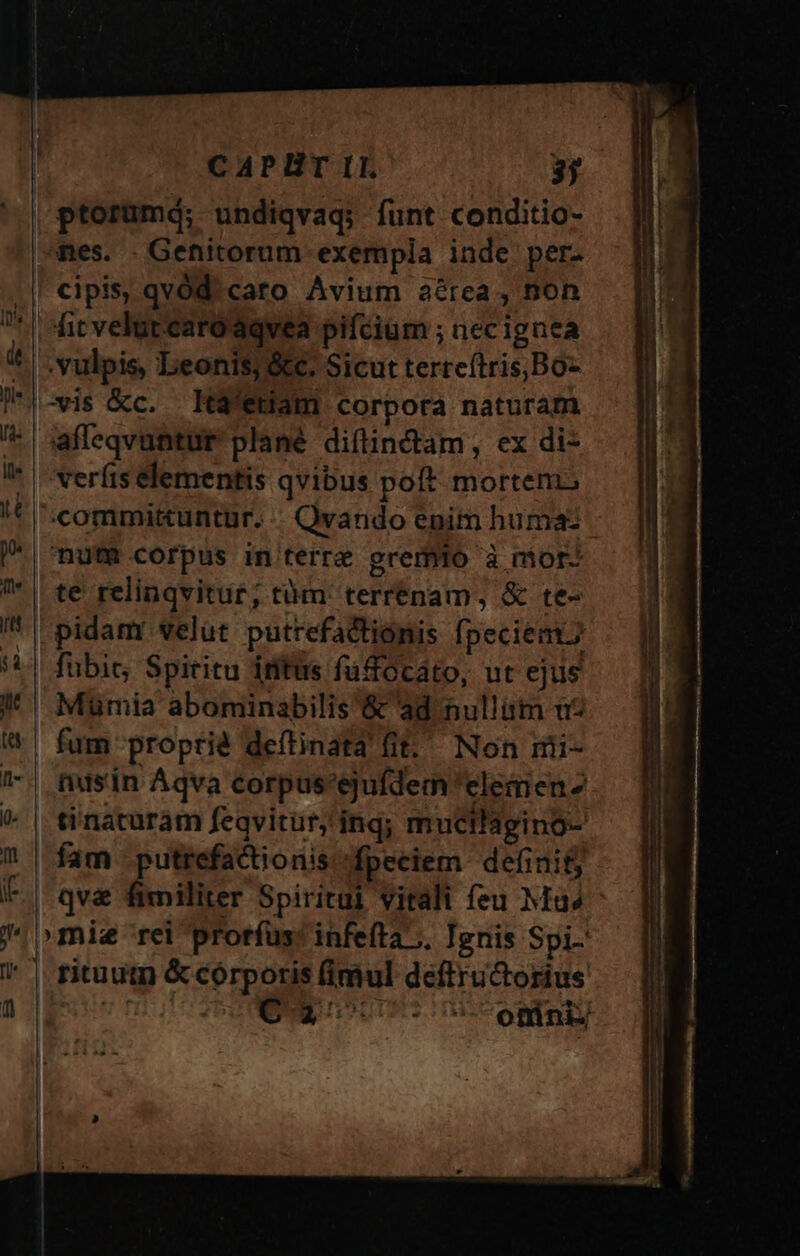 CAPUT II. 35
ptorumq; undiqvaq; ſunt conditio-
nes. Genitorum exempla inde per-
cipis, qvòd caro Avium aërea, non
fit velut caro aqvea piſcium; nec ignea
vulpis, Leonis, &c. Sicut terreſtris, Bo-
vis &c. Ita etiam corpora naturam
aſſeqvuntur planè diſtinctam, ex di-
verſis elementis qvibus poſt mortem
committuntur. Qvando enim huma-
num corpus in terræ gremio à mor-
te relinqvitur, tùm terrenam, & te-
pidam velut putrefactionis ſpeciem
ſubit, Spiritu intus ſuffocáto, ut ejus
Mumia abominabilis & ad nullum u-
ſum propriè deſtinata fit. Non mi-
nus in Aqva corpus ejuſdem elemen-
ti naturam ſeqvitur, inq; mucilagino-
ſam putrefactionis ſpeciem definit,
qvæ ſimiliter Spiritui vitali ſeu Mu-
miæ rei prorſus infeſta. Ignis Spi-
rituum & corporis ſimul deſtructorius
C 2 omni-